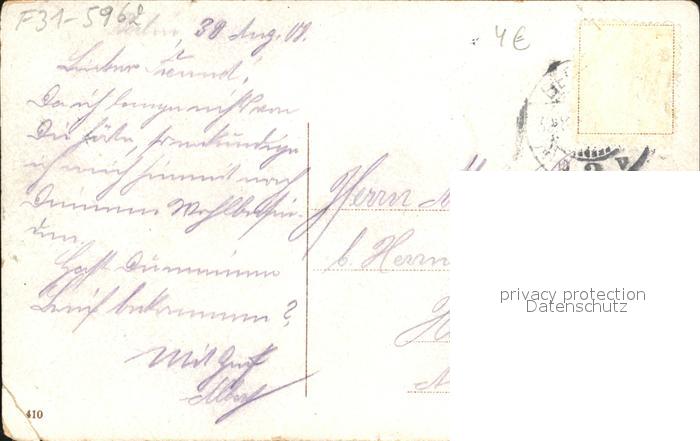 F31-5962
Berlin, 30 Aug. 09.
4€
Lieber Freund!
Da ich lange nichts von
Dir höre, so erkundige
ich mich hiermit nach
Deinem Wohlbefin-
den.
Hast Du meinen
Brief bekommen?
Mit Gruß
Herrn
b. Herrn
privacy protection
Datenschutz
410